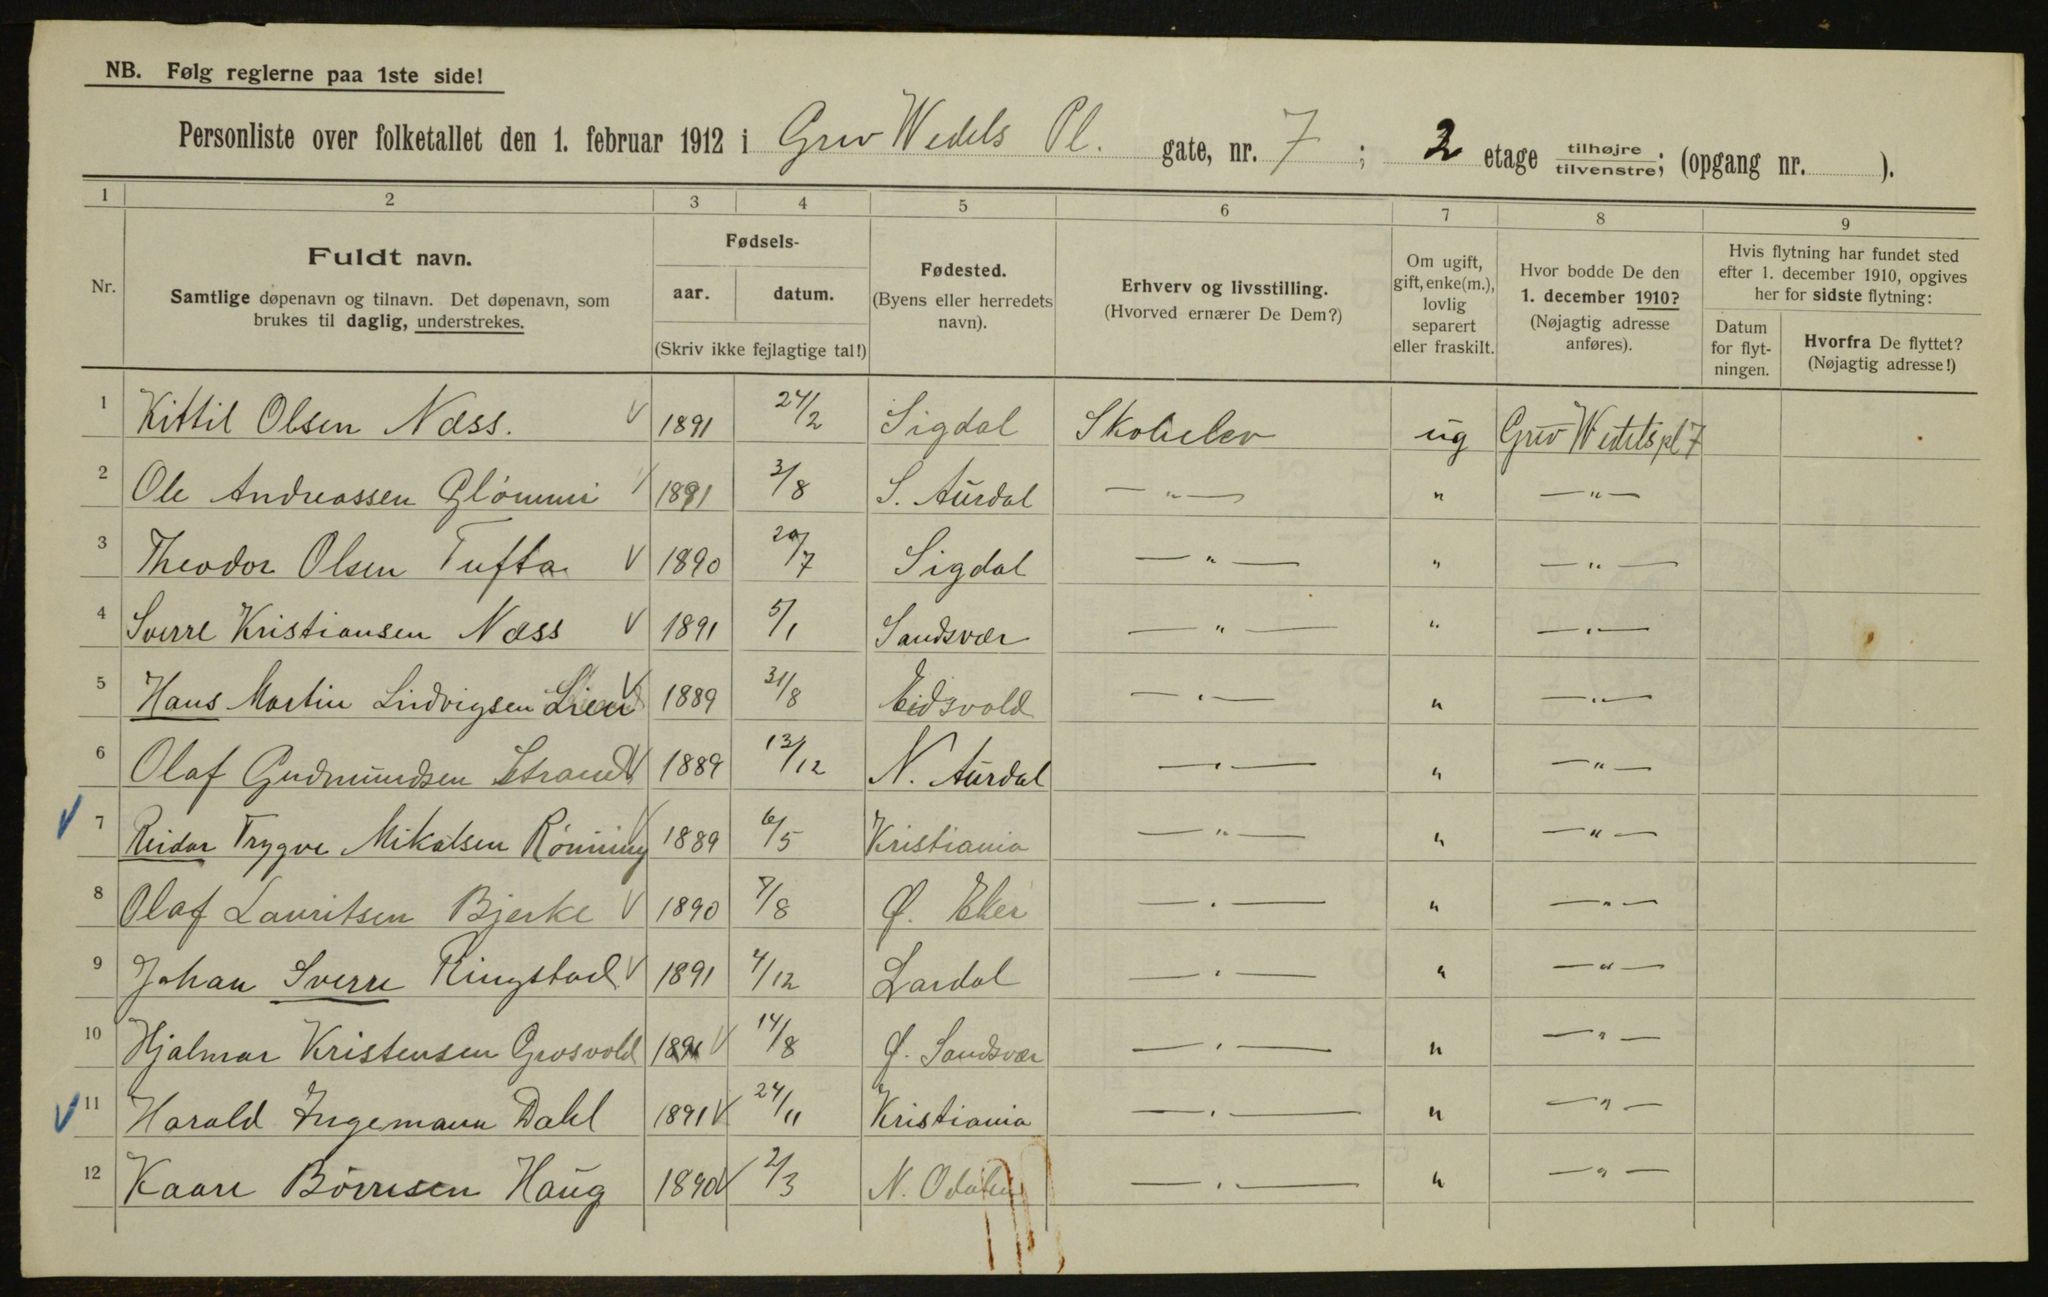 NB. Følg reglerne paa 1ste side!
Personliste over folketallet den 1. februar 1912 i Grev Wedels Pl. gate, nr. 7 ; 2 etage tilhøjre/tilvenstre; (opgang nr. ).
1 2 3 4 5 6 7 8 9
Nr.
Fuldt navn.
Samtlige døpenavn og tilnavn. Det døpenavn, som
brukes til daglig, understrekes.
Fødsels-
aar. datum.
(Skriv ikke fejlagtige tal!)
Fødested.
(Byens eller herredets
navn).
Erhverv og livsstilling.
(Hvorved ernærer De Dem?)
Om ugift,
gift, enke(m.),
lovlig
separert
eller fraskilt.
Hvor bodde De den
1. december 1910?
(Nøjagtig adresse
anføres).
Hvis flytning har fundet sted
efter 1. december 1910, opgives
her for sidste flytning:
Datum
for flyt-
ningen.
Hvorfra De flyttet?
(Nøjagtig adresse!)
1 Kittil Olsen Næss. V 1891 24/2 Sigdal Skoleelev ug Grev Wedels pl 7
2 Ole Andreassen Glömmi V 1891 3/8 S. Aurdal — " — " — " —
3 Theodor Olsen Tufta V 1890 20/7 Sigdal — " — " — " —
4 Sverre Kristiansen Næss V 1891 5/1 Sandsvær — " — " — " —
5 Hans Martin Ludvigsen Lien V 1889 31/8 Eidsvold — " — " — " —
6 Olaf Gudmundsen Strand V 1889 13/12 N. Aurdal — " — " — " —
V 7 Reidar Trygve Mikalsen Rønning V 1889 6/5 Kristiania — " — " — " —
8 Olaf Lauritsen Bjerke V 1890 7/8 Ø. Eker — " — " — " —
9 Johan Sverre Ringstad V 1891 4/12 Lardal — " — " — " —
10 Hjalmar Kristensen Grosvold V 14/8 Ø. Sandsvær — " — " — " —
V 11 Harald Ingemann Dahl 1891 V 24/11 Kristiania — " — " — " —
12 Kaare Börresen Haug 1890 V 2/3 N. Odalen — " — " — " —